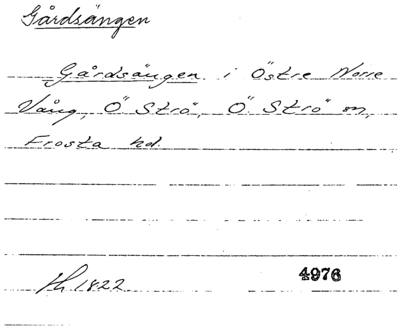 Gårdsängen
Gårdsängen i Östre Norre
Vång, Ö Strö, Ö. Strö sn,
Frosta hd.
1822
4976